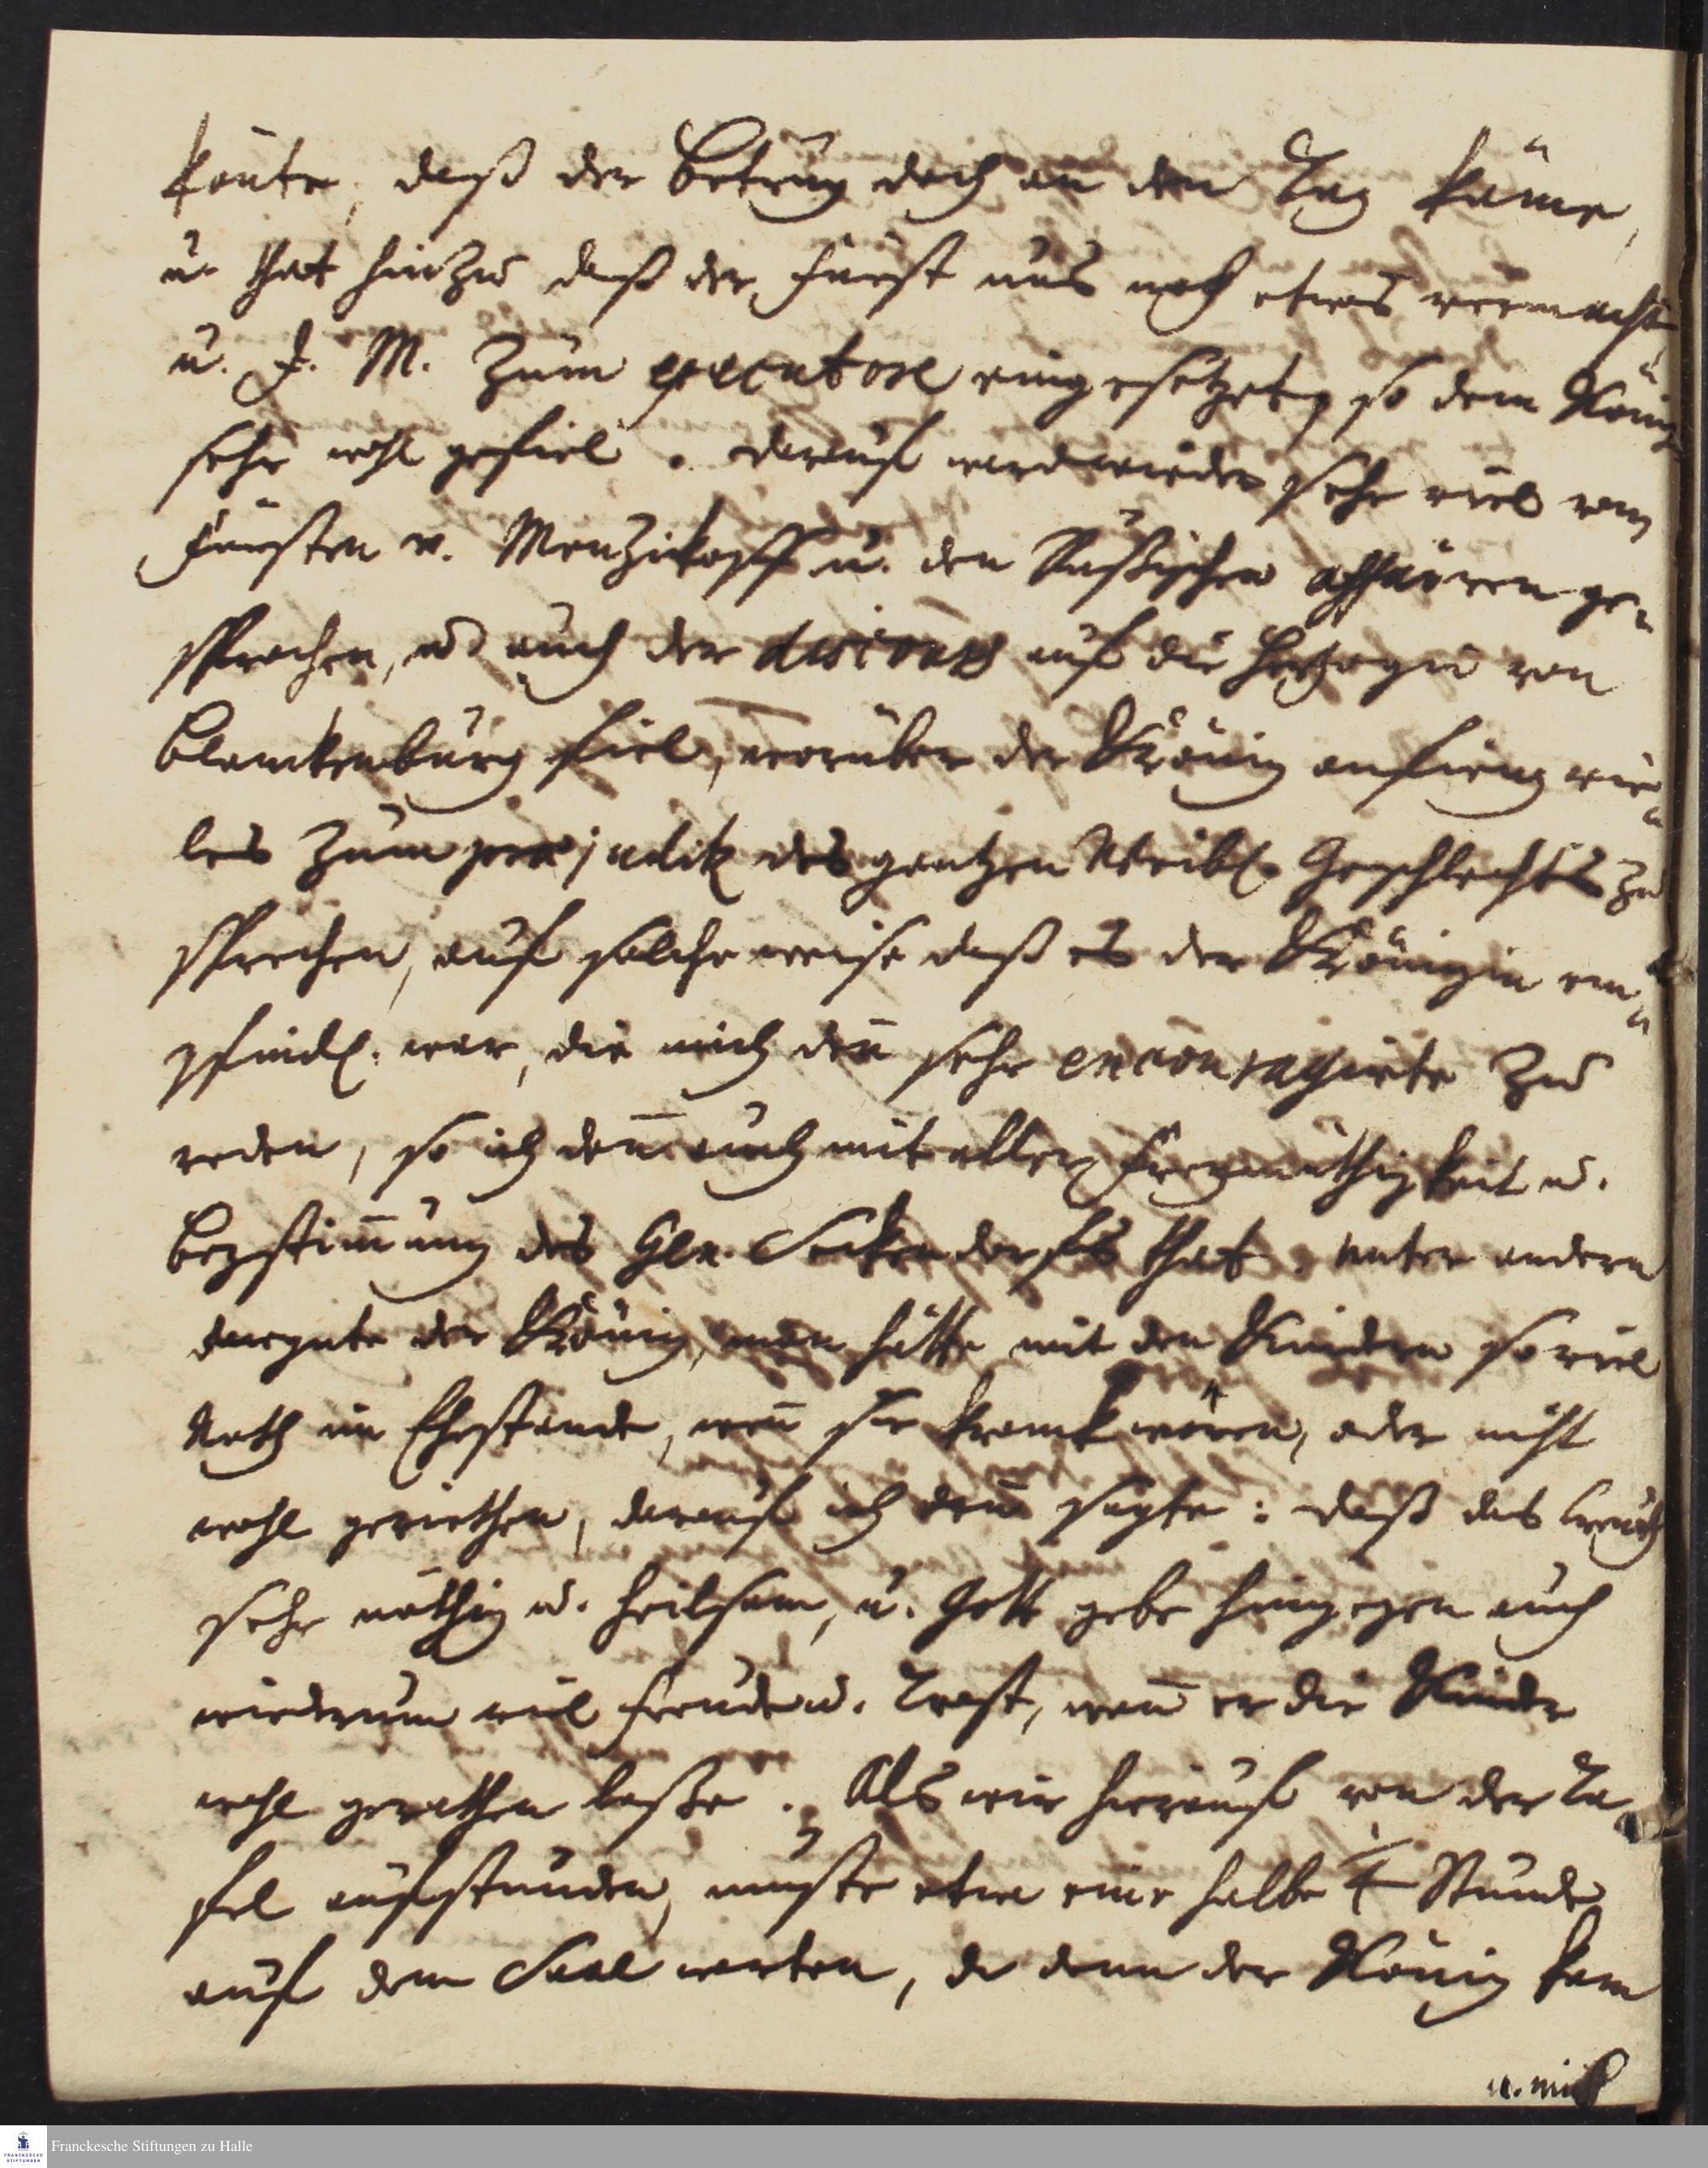 könte, daß der Betrug doch an den Tag käme,
u. that hinzu daß der Fürst uns noch etwas vermacht
u. J. M. zum executore eingesetzet, so dem König
sehr wohl gefiel. Darauf ward wieder sehr viel vom
Fürsten v. Menzikoff u. den Rußischen affairen ge-
sprochen, u. auch der discours auf die Hertzogin von
Blanckenburg fiel, worüber der König anfieng vie-
les zum praejudiz des gantzen Weibl. Geschlechts zu
sprechen, auf solche weise daß es der Königin em-
pfindl. war, die mich den̄ sehr encouragirte zu
reden, so ich den̄ auch mit aller Freymüthigkeit u.
Beystim̄ung des Gen. Seckendorffs that. Unter andern
sagte der König, man hätte mit den Kindern so viel
Noth im Ehestande, wen̄ sie kranck wären, oder nicht
wohl geriethen, darauf ich den̄ sagte: daß das Creutz
sehr nöthig u. heilsam, u. Gott gebe hingegen auch
wiederum viel Freude u. Trost, wen̄ er die Kinder
wohl gerathen laße. Als wir hierauf von der Ta-
fel aufstunden, muste etwa eine halbe 1/4 Stunde
auf dem Saal warten, da denn der König kam
u. mich
Franckesche Stiftungen zu Halle